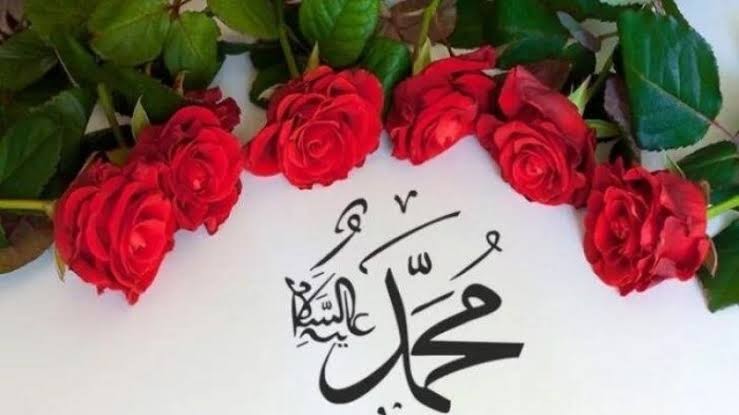 مُحَمَّد
عليه السَّلام